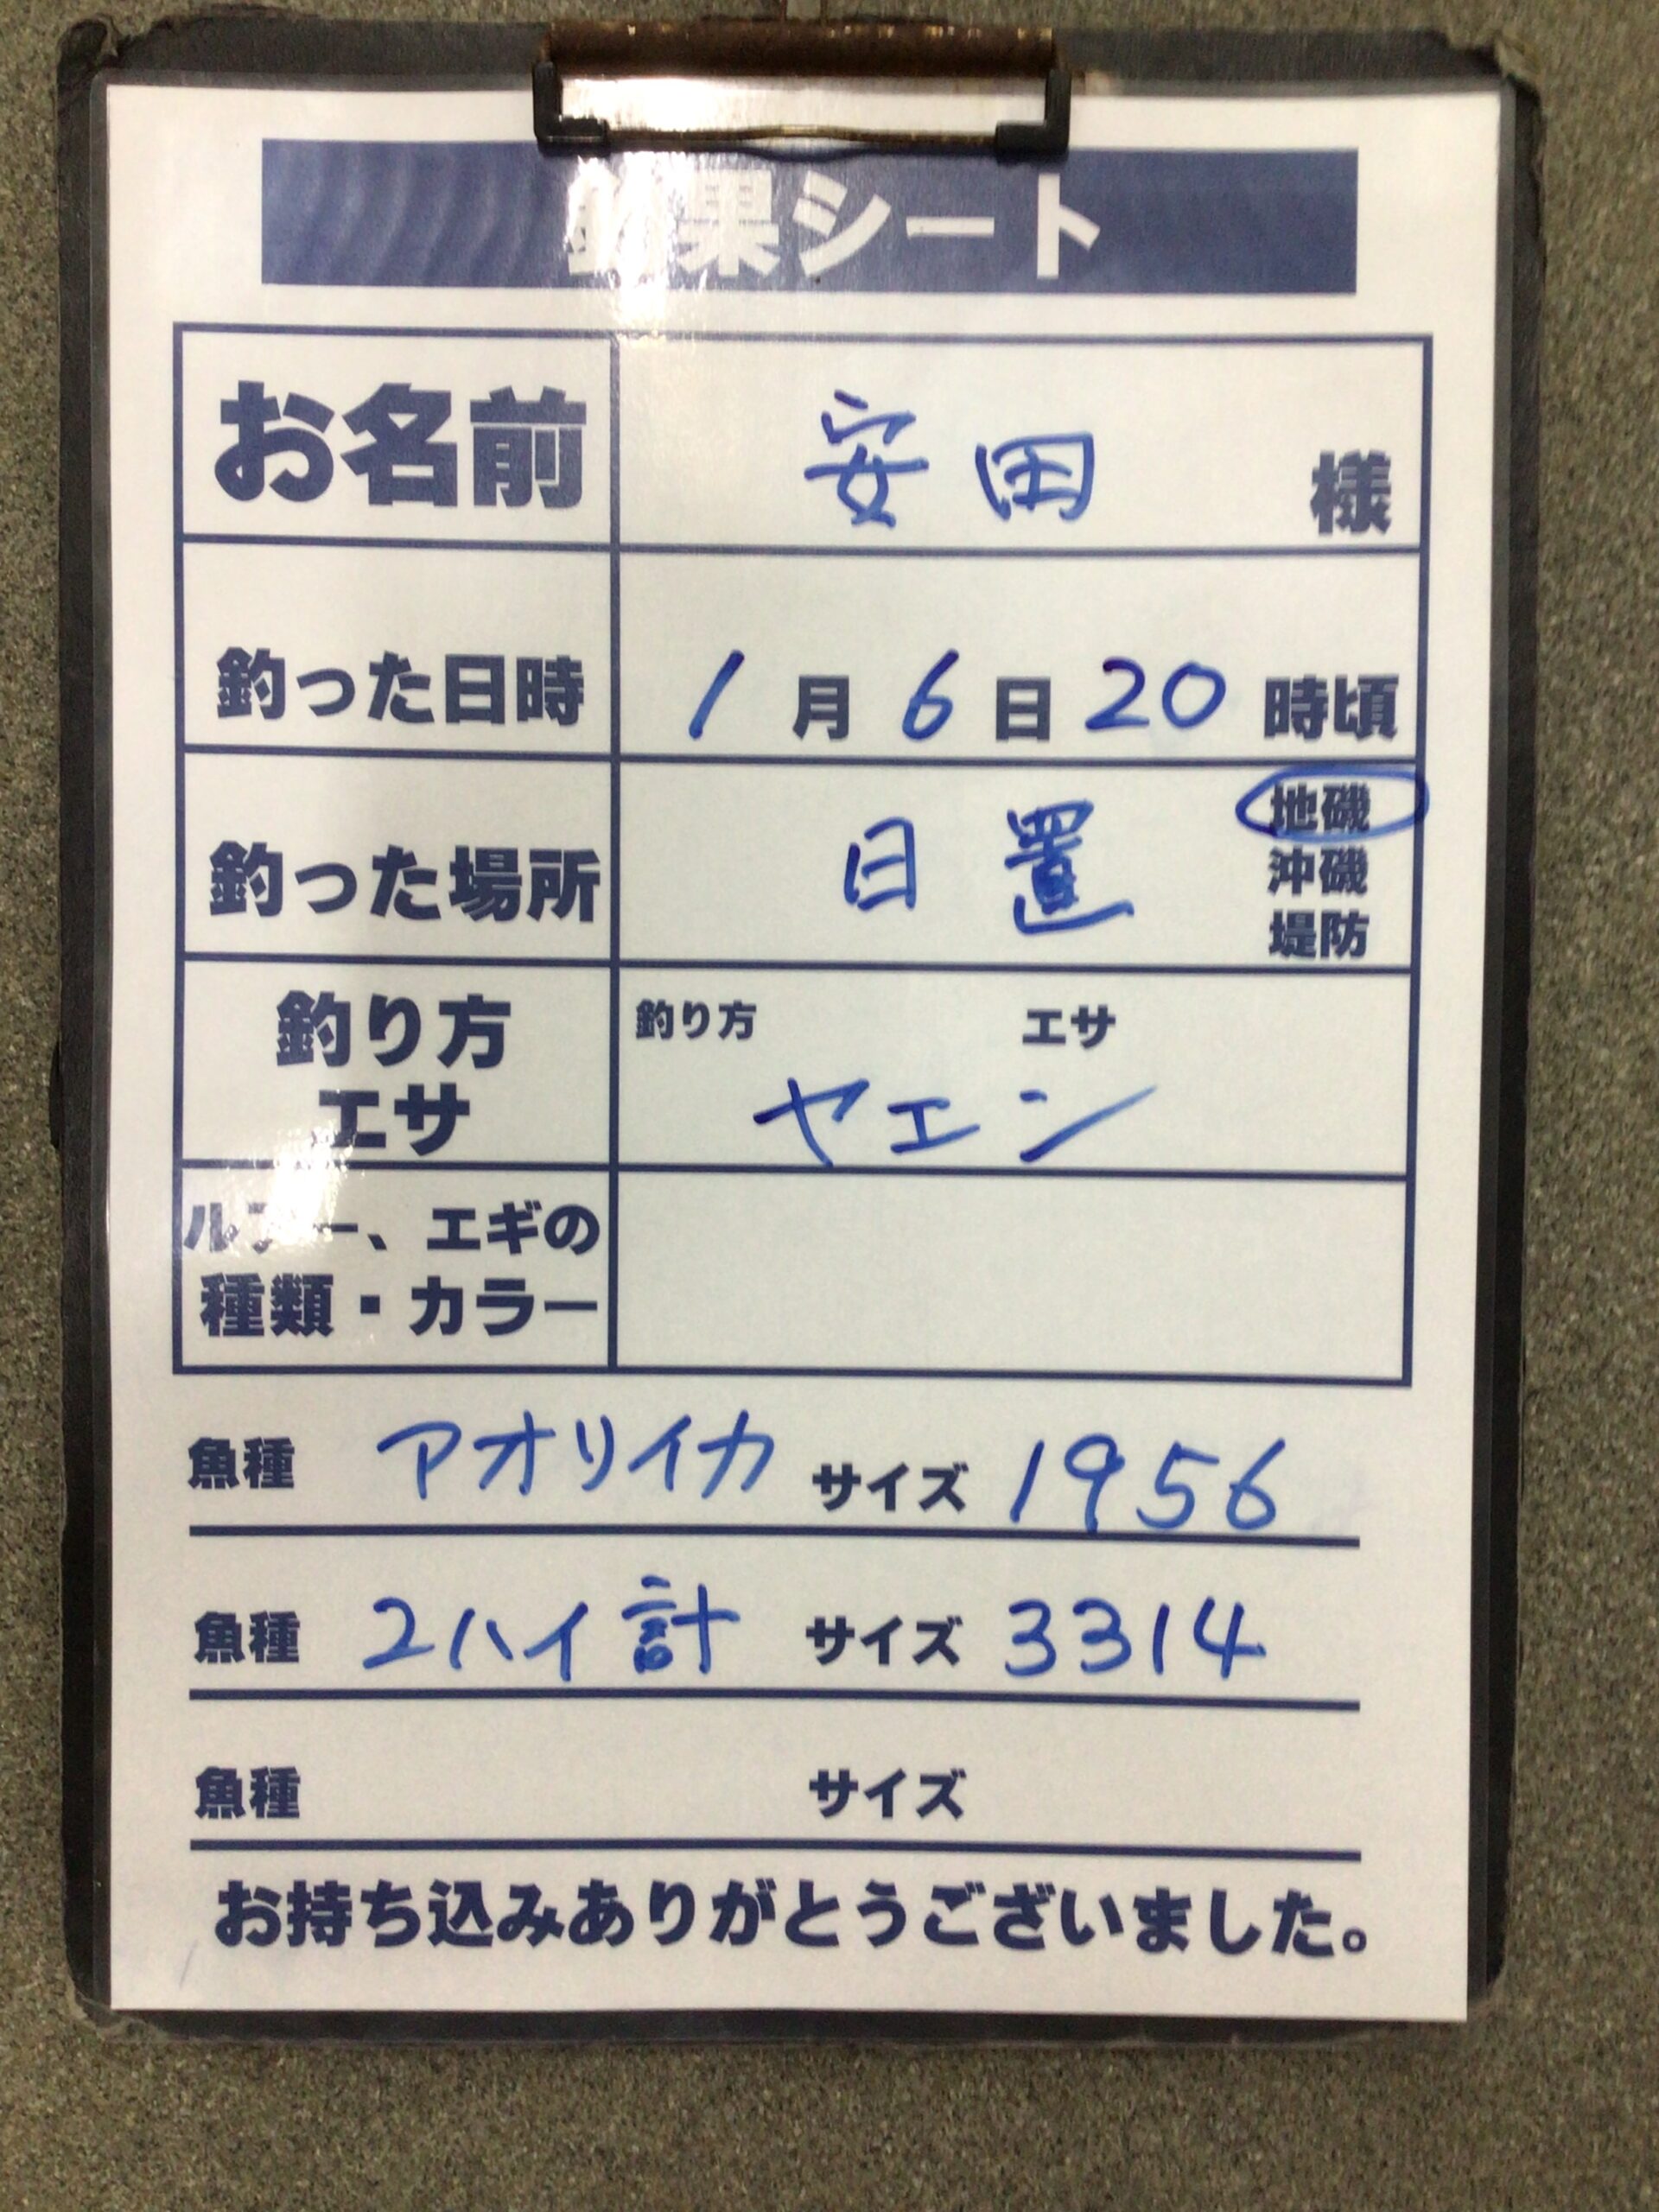 釣果シート
お名前 安田 様
釣った日時 1月6日20時頃
釣った場所 日置 地磯
沖磯
堤防
釣り方 エサ
釣り方
エサ
ヤエン
ルアー、エギの
種類・カラー
魚種 アオリイカ サイズ 1956
魚種 2ハイ計 サイズ 3314
魚種 サイズ
お持ち込みありがとうございました。